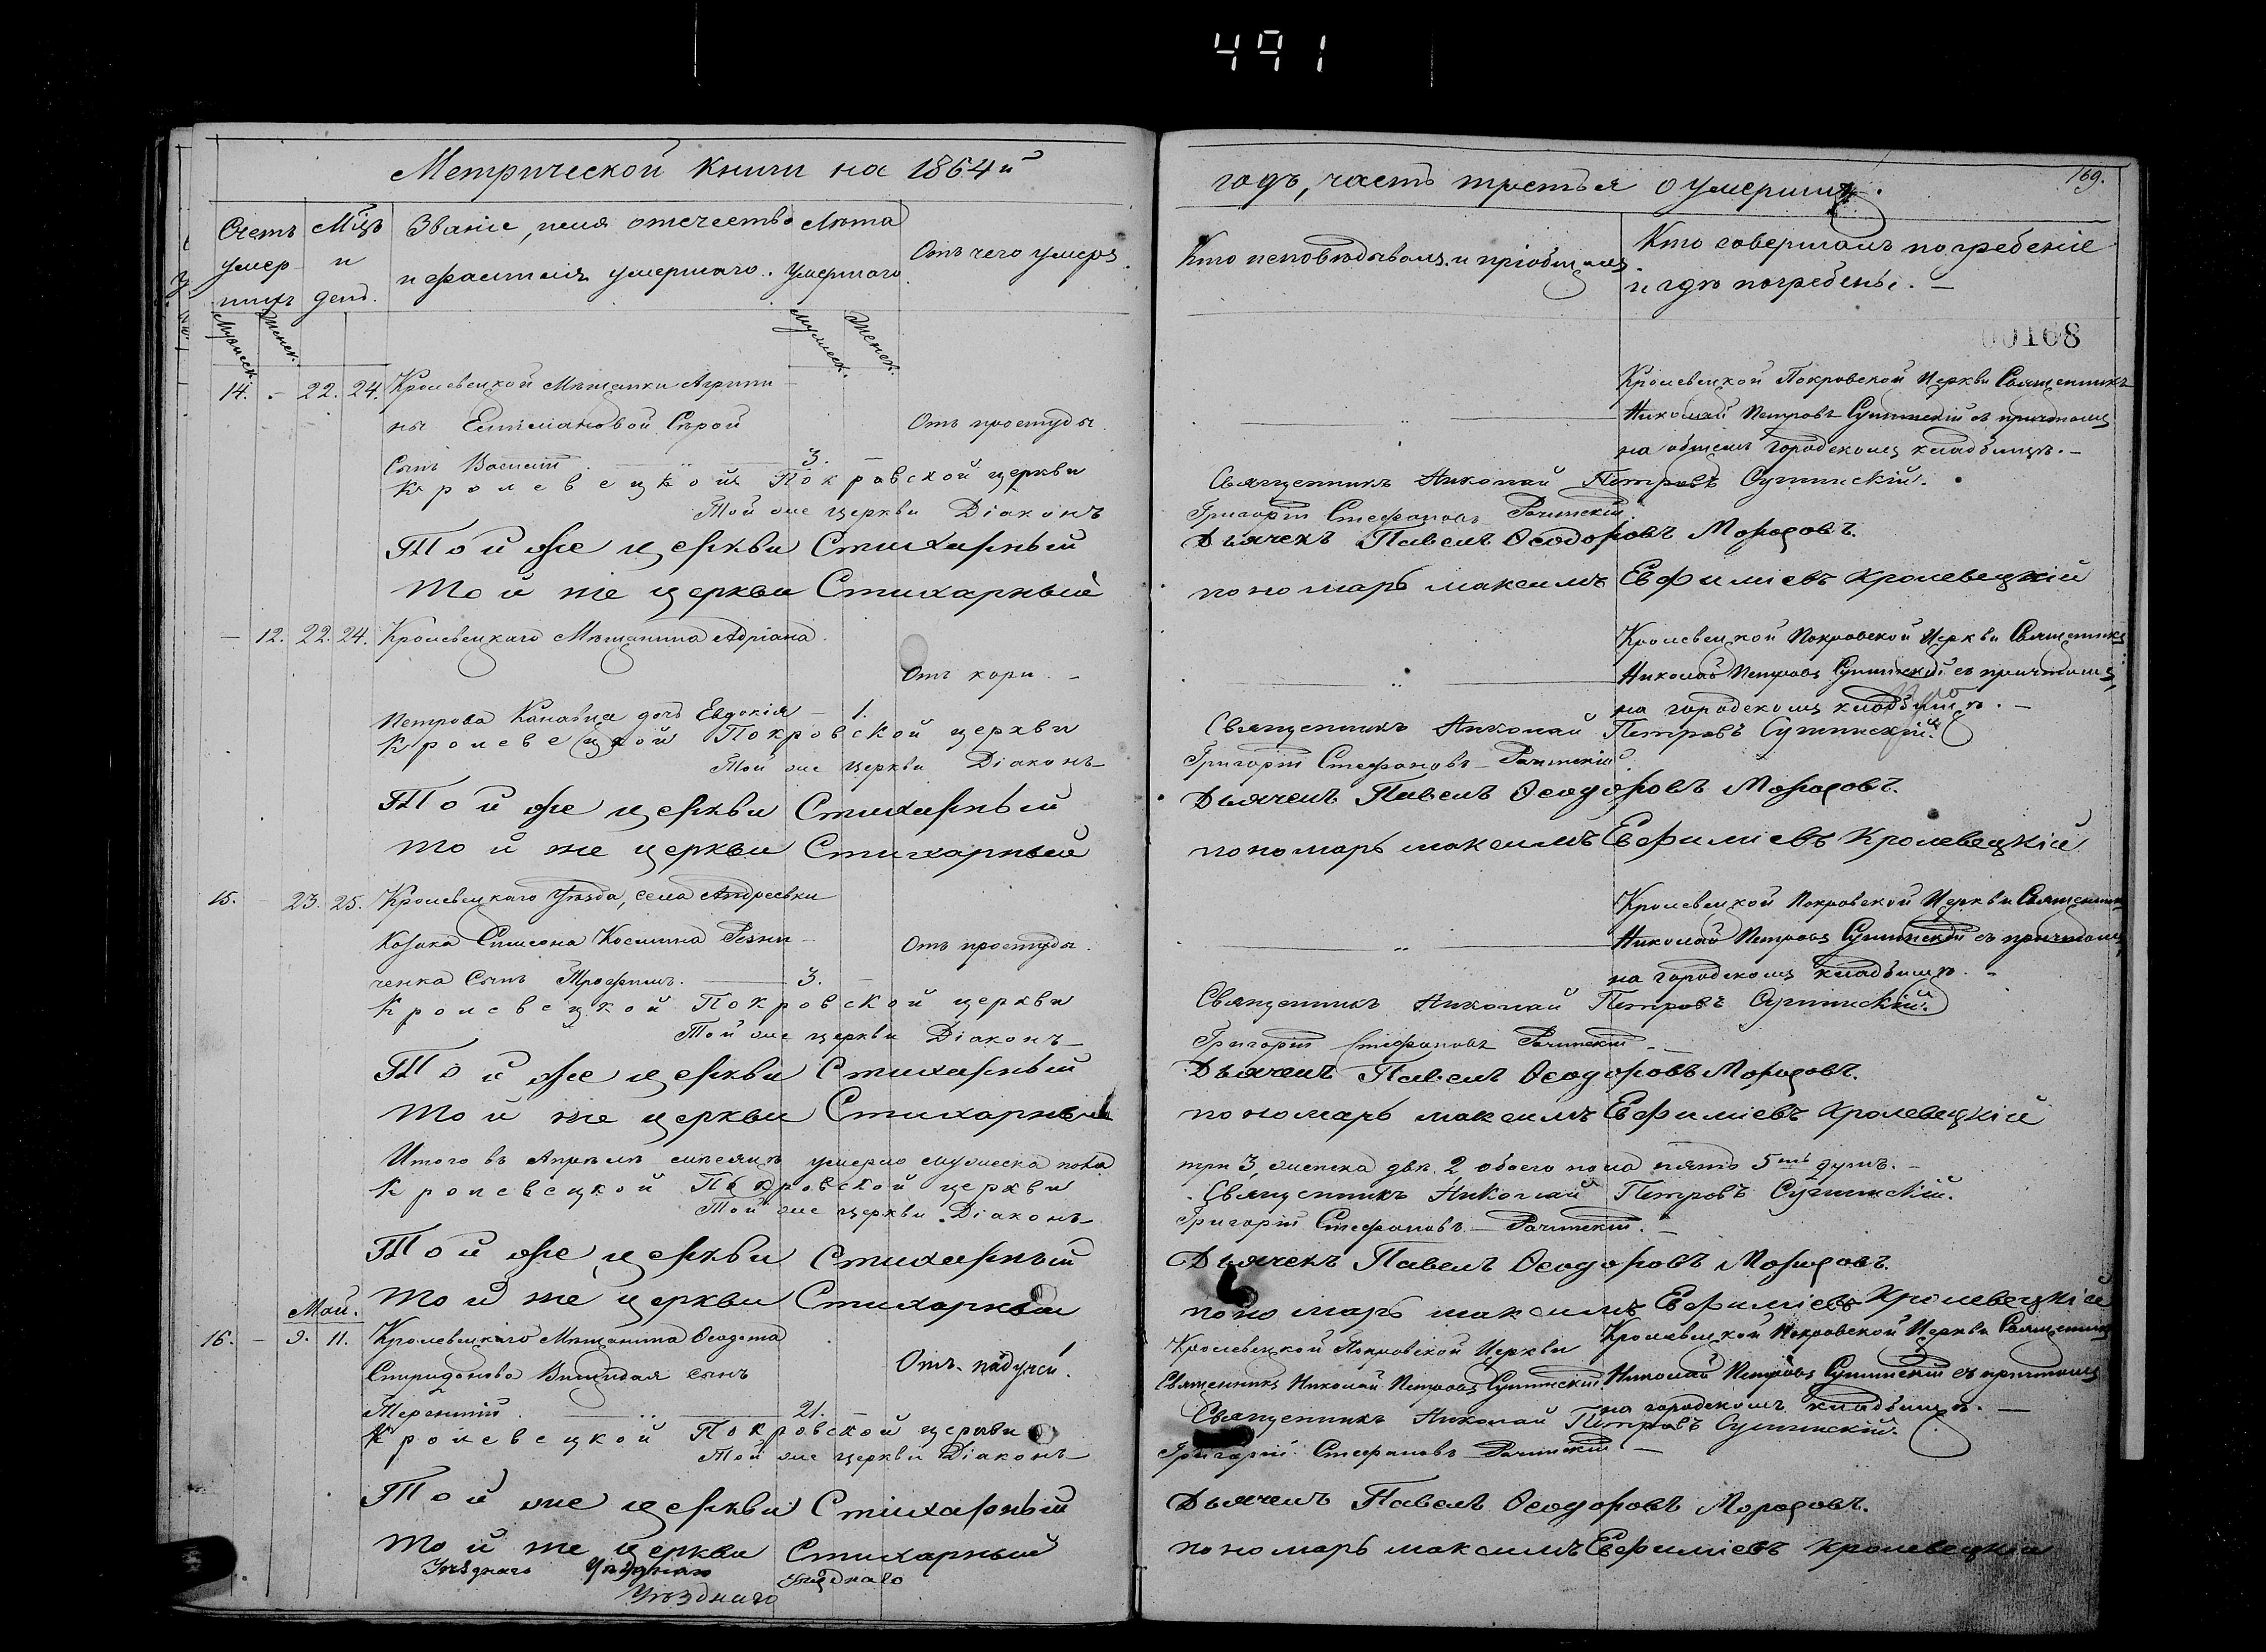 491
Метрической книги на 1864й
годъ, часть третья о умершихъ.
169.
Счетъ умер-шихъ
Мѣцъ и день.
Званіе, имя отечество и фамилія умершаго.
Лѣта умершаго
Отъ чего умеръ.
Кто исповѣдывалъ и пріобщалъ
Кто совершалъ погребеніе и гдѣ погребены.
Мужеск.
Женск.
Мужеск.
Женск.
00168
14. - 22. 24. Кролевецкой Мѣщанки Агрипи-
ны Сѣрой
Отъ простуды.
Сынъ 3.
Кролевецкой Покровской Церкви Священникъ
Николай Петровъ съ причтомъ
на общемъ городскомъ кладбищѣ.
Кролевецкой Покровской церкви
Священникъ Николай Петровъ
Той же церкви Діаконъ
Григорій Стефановъ
Той же церкви Стихарный
Дьячекъ Павелъ Ѳеодоровъ
той же церкви Стихарный
пономарь максимъ Евфиміевъ Кролевецкій
— 12. 22. 24. Кролевецкаго Мѣщанина Адріана
Отъ кори.
Петрова дочь Евдокія 1.
Кролевецкой Покровской Церкви Священникъ
Николай Петровъ съ причтомъ,
на городскомъ кладбищѣ.
Кролевецкой Покровской церкви
Священникъ Николай Петровъ
Той же церкви Діаконъ
Григорій Стефановъ
Той же церкви Стихарный
Дьячекъ Павелъ Ѳеодоровъ
той же церкви Стихарный
пономарь максимъ Евфиміевъ Кролевецкій
15. 23. 25. Кролевецкаго Уѣзда, села Андреевки
Козака Симеона Космина Резни-
Отъ простуды.
ченка Сынъ Трофимъ. 3.
Кролевецкой Покровской Церкви Священникъ
Николай Петровъ съ причтомъ
на городскомъ кладбищѣ.
Кролевецкой Покровской церкви
Священникъ Николай Петровъ
Той же церкви Діаконъ
Григорій Стефановъ
Той же церкви Стихарный
Дьячекъ Павелъ Ѳеодоровъ
той же церкви Стихарный
пономарь максимъ Евфиміевъ Кролевецкій
Итого въ Апрѣлѣ мѣсяцѣ умерло мужеска пола
три 3, женска двѣ 2 обоего пола пять 5ть душъ.
Кролевецкой Покровской церкви
Священникъ Николай Петровъ
Той же церкви Діаконъ
Григорій Стефановъ
Той же церкви Стихарный
Дьячекъ Павелъ Ѳеодоровъ
той же церкви Стихарный
пономарь максимъ Евфиміевъ Кролевецкій
Май.
16. — 9. 11. Кролевецкаго Мѣщанина Ѳеодота
Спиридонова сынъ
Отъ падучей.
Терентій 21.
Кролевецкой Покровской Церкви
Священникъ Николай Петровъ
Кролевецкой Покровской Церкви Священникъ
Николай Петровъ съ причтомъ
на городскомъ кладбищѣ.
Кролевецкой Покровской церкви
Священникъ Николай Петровъ
Той же церкви Діаконъ
Григорій Стефановъ
Той же церкви Стихарный
Дьячекъ Павелъ Ѳеодоровъ
той же церкви Стихарный
пономарь максимъ Евфиміевъ Кролевецкій
Уѣзднаго
Уѣзднаго